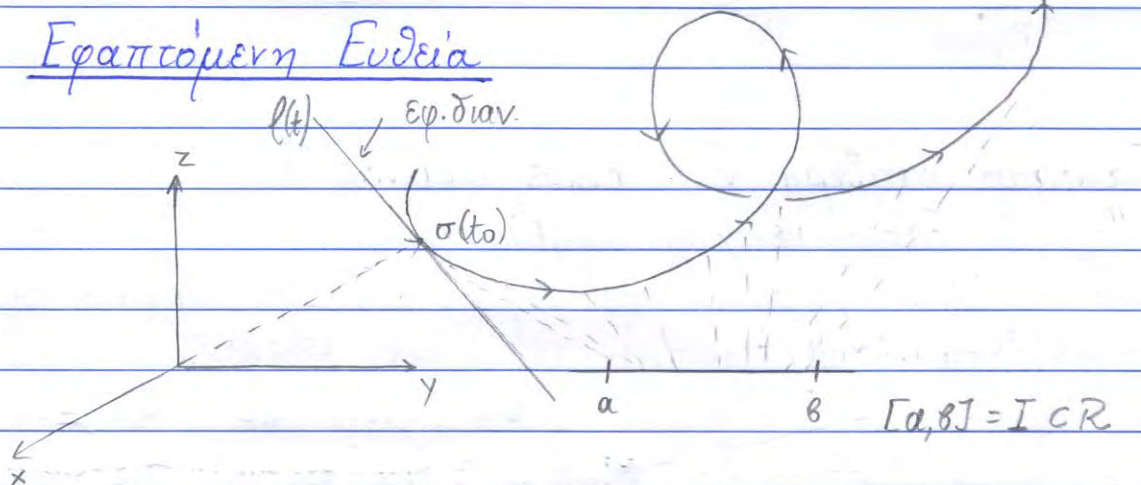 Εφαπτόμενη Ευθεία
l(t) εφ. διαν.
z
σ(t₀)
y
a
β
[a,β] = I ⊂ R
x